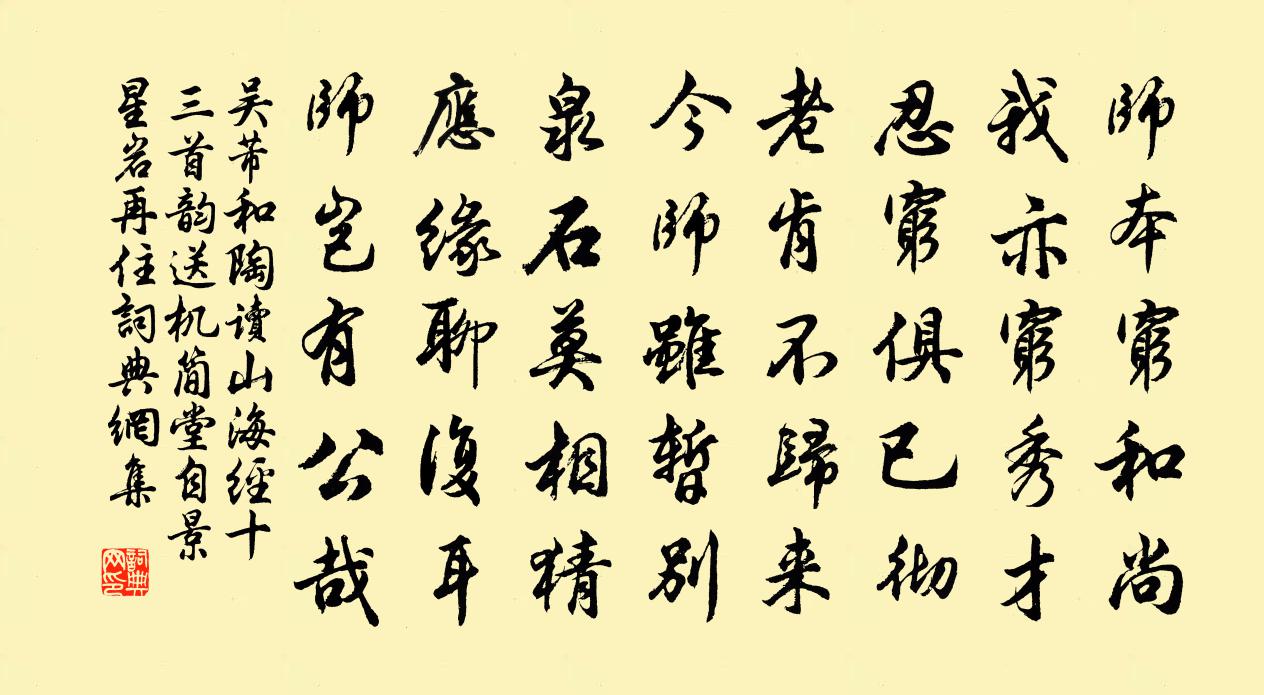 師本窮和尚
我亦窮秀才
忍窮俱已彻
老肯不歸来
今師雖暫别
泉石莫相猜
應緣聊復耳
師岂有公哉
吴芾和陶讀山海經十
三首韵送机简堂自景
星岩再住詞典網集
詞典
网印